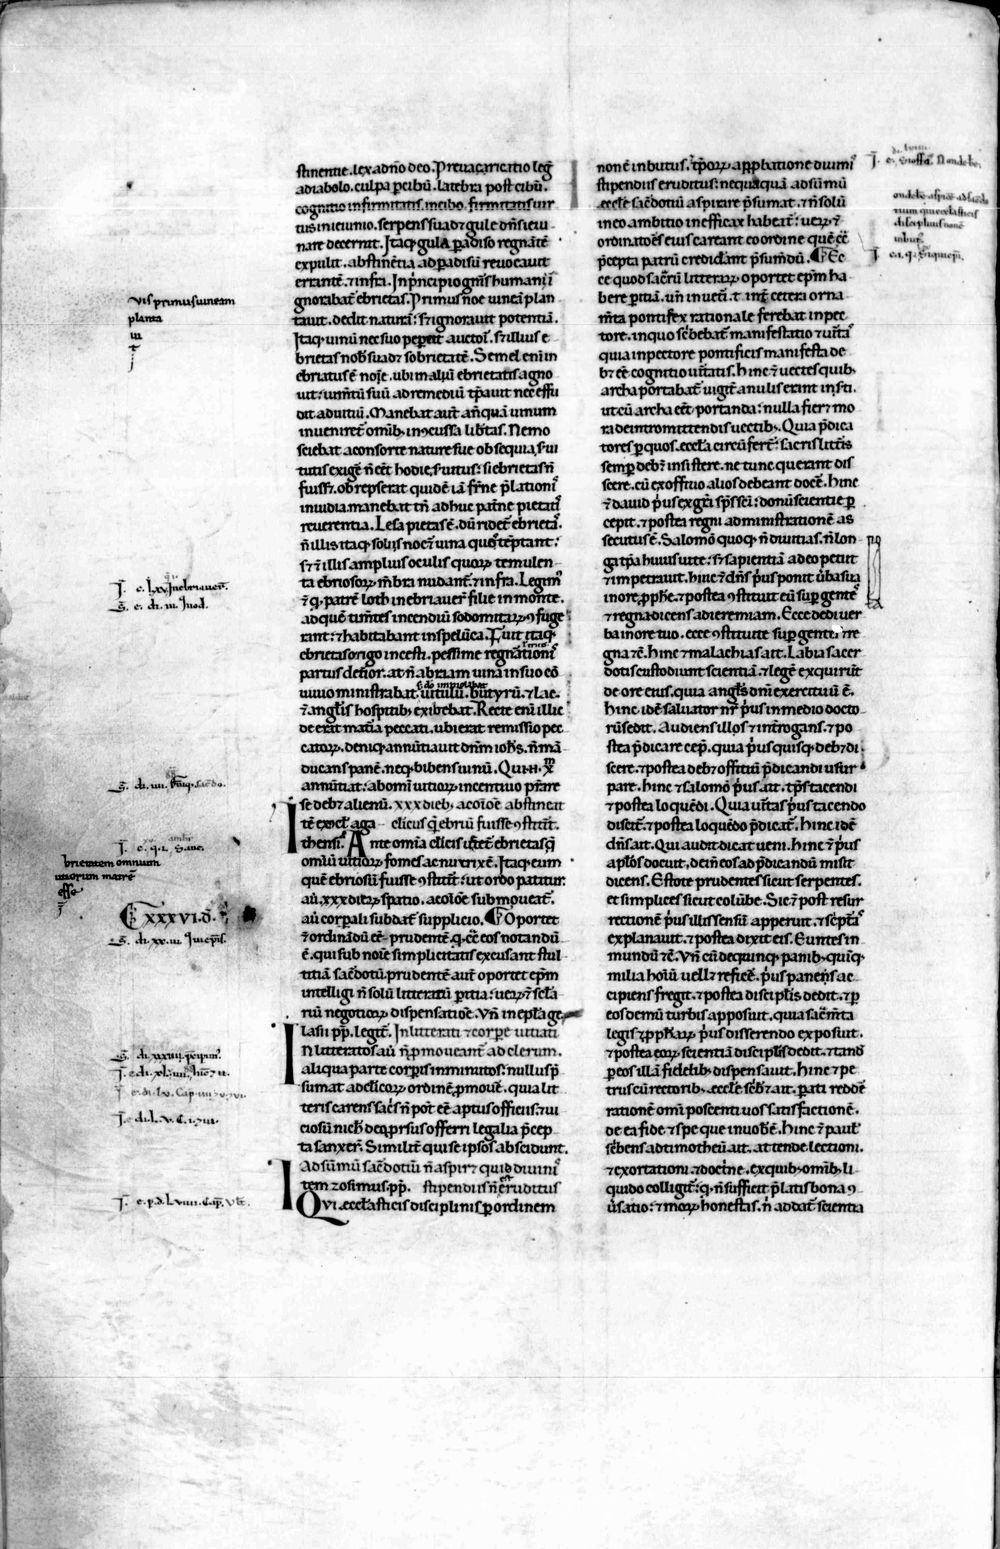 stinentie. lex a dño deo. Preuaricatio leg̃
a diabolo. culpa p cibũ. latebra post cibũ.
cognitio infirmitatis in cibo. firmitatis uir
tus in ieiunio. serpens suadꝫ gule dñs ieiu
nare decernit. Itaqꝫ gula padiso regnãtẽ
expulit. abstinẽtia ad padisũ reuocauit
errantẽ. ⁊ infra. In p̃ncipio gñis humani i
gnorabat̃ ebrietas. Primus noe uineã plan
tauit. dedit naturã: sꝫ ignorauit potentiã.
Itaqꝫ uinũ nec suo pepcit auctori. sꝫ illius e
brietas nob̃ suadꝫ sobrietatẽ. Semel eni in
ebriatus ẽ noe. ubi malũ ebrietatis agno
uit: uinũ suũ ad remediũ tp̃auit nec effu
dit ad uitiũ. Manebat aut̃ añquã uinum
inueniret̃ omib ĩcussa lib̃tas. Nemo
sciebat a consorte nature sue obsequia, s̃ui
tutis exigẽ ñ eet̃ hodie s̃uitus: si ebrietas ñ
fuisset. obrepserat quidẽ iã fr̃ne p̃lationi
inuidia manebat tñ adhuc pat̃ne pietati
reuerentia. Lesa pietas ẽ. dũ ridet̃ ebrietas.
ñ illis itaqꝫ solis noceꝫ uina quos teptant:
sꝫ ⁊ illis amplius oculis quoꝝ temulen
ta ebriosoꝝ mẽbra nudant̃. ⁊ infra. Legim
⁊ qꝫ patrẽ loth inebriauer̃ filie in monte.
ad quẽ timẽtes incendiũ sodomitaꝝ ꝯfuge
rant: ⁊ habitabant in spelũca. Fuit itaqꝫ
ebrietas origo incesti. pessime regnationi
partus deterior. at ñ abraam uina in suo cõ
uiuio ministrabat. uitulũ. butyrũ. ⁊ lac.
⁊ anglis hospitib exibebat. Recte eni illic
deerat mat̃ia peccati. ubi erat remissio pec
catoꝝ. deniqꝫ annũtiauit dnm ioh̃s. ñ mã
ducans panẽ. neqꝫ bibens uinũ. Qui xp̃m
annũtiat: ab omi uitioꝝ incentiuo p̃are
se debꝫ alienũ. xxx dieb a cõione abstineat
Itẽ ex ꝯcl. aga clericus q̃ ebriũ fuisse ꝯstit̃it.
thensi. Ante omia clericis uetet̃ ebrietas q̃
omiũ uitioꝝ fomes ac nutrix ẽ. Itaqꝫ eum
quẽ ebriosũ fuisse ꝯstit̃it: ut ordo patitur.
aũ xxx dieꝝ spatio. a cõione submoueat̃.
aũ corpali subdat̃ supplicio. Oportet
⁊ ordinãdũ eẽ prudentẽ. qꝫ eẽ eos notandũ
ẽ. qui sub noie simplicitatis excusant stul
titiã sacẽdotũ prudentẽ aut̃ oportet ep̃m
intelligi ñ solũ litteratũ pitia: ueꝝ ⁊ scl̃a
riũ negotioꝝ dispensatioẽ. Vñ in epl̃a ge
lasii pp̃. legit̃. In litterati ⁊ corpe uitiati
ñ litteratos aũ ñ pmoueant ad clerum.
aliqua parte corpis imminutos: nullus p̃
sumat ad elicoꝝ ordinẽ pmouẽ. quia lit
teris carens sac̃s ñ pot̃ eẽ aptus officiis: ⁊ ui
ciosũ nichil deo prsus offerri legalia p̃cep
ta sanxer̃. Similit̃ qui se ipsos abscidunt.
Ad sũmũ sac̃dotiũ ñ aspiret qui diuini
Item zosimus pp̃. stipendiis ñ est eruditus
Qui eccl̃asticis disciplinis p ordinem
non ẽ inbutus. tp̃oꝝ ap̃p̃batione diuini
stipendiis eruditus: nequaquã ad sũmũ
eccl̃e sac̃dotiũ aspirare p̃sumat. ⁊ ñ solũ
in eo ambitio inefficax habeat̃: ueꝝ ⁊
ordinatores eius careant eo ordine quẽ cõt̃
p̃cepta patrũ crediderant p̃sumẽdũ. Ec
ce quod sac̃rũ litteraꝝ oportet ep̃m ha
bere pitiã. uñ in uet̃i. t. int̃ cetera orna
mẽta pontifex rationale ferebat in pec
tore. in quo sc̃bebat̃ manifestatio ⁊ u̾itas
quia in pectore pontificis manifesta de
bꝫ eẽ cognitio u̾itatis. hinc ⁊ uectes quib
archa portabat̃ iugit̃ anulis erant inserti.
ut cũ archa eet̃ portanda: nulla fieret mo
ra de intromittendis uectib. Quia p̃dica
tores p quos eccl̃a circũfert̃: sacris litt̃is
semp debꝫ insistere. ne tunc querant dis
cere. cũ ex offitio alios debeant docẽ. hinc
⁊ dauid p̃us ex gr̃a sp̃s sc̃i: donũ scientie p
cepit. ⁊ postea regni administrationẽ as
secutus ẽ. Salomõ quoqꝫ ñ diuitias. ñ lon
ga tp̃a huius uite: sꝫ sapientiã a deo petiit
⁊ impetrauit. hinc ⁊ dñs p̃us ponit u̾ba sua
in ore pp̃he. ⁊ postea ꝯstituit eũ sup gentẽ
⁊ regna dicens ad ieremiam. Ecce dedi uer
ba in ore tuo. ecce ꝯstituite sup gentes ⁊ re
gna ⁊c̃. hinc ⁊ malachias ait. Labia sacer
dotis custodiunt scientiã. ⁊ legẽ exquirũt
de ore eius. quia angl̃s dñi exercituũ ẽ.
hinc idẽ saluator nr̃ p̃us in medio docto
rũ sedit. Audiens illos ⁊ int̃rogans. ⁊ po
stea p̃dicare cep̃. quia p̃us quisqꝫ debꝫ di
scere. ⁊ postea debꝫ offitiũ p̃dicandi usur
pare. hinc ⁊ salomõ p̃us ait. tp̃s tacendi
⁊ postea loquẽdi. Quia u̾itas p̃us tacendo
discit̃. ⁊ postea loquẽdo p̃dicat̃. hinc idẽ
dñs ait. Qui audit dicat ueni. hinc ⁊ p̃us
apl̃os docuit. dein eos ad p̃dicandũ misit
dicens. Estote prudentes sicut serpentes.
et simplices sicut colũbe. Sic ⁊ post resur
rectionẽ p̃us illis sensũ apperuit. ⁊ sc̃pt̃as
explanauit. ⁊ postea dixit eis. Euntes in
mundũ ⁊c̃. Vñ cũ de quinqꝫ panib quiqꝫ
milia hoĩũ uellꝫ reficẽ. p̃us panẽ suũ ac
cipiens fregit. ⁊ postea discipl̃is dedit. ⁊ p
eos demũ turbis apposuit. quia sacm̃ta
legis ⁊ pp̃haꝝ p̃us disserendo exposuit.
⁊ postea eoꝝ scientiã discipl̃is dedit. ⁊ tand
p eos illã fidelib dispensauit. hinc ⁊ pe
trus cũ rectorib eccl̃e sc̃bꝫ ait. parati reddẽ
rationẽ omi poscenti uos satisfactionẽ.
de ea fide ⁊ spe que in uob̃ ẽ. hinc ⁊ paul
sc̃bens ad timotheũ ait. attende lectioni.
⁊ exortationi. ⁊ doct̃ne. ex quib omib li
quido colligit̃: qꝫ ñ sufficit p̃latis bona ꝯ
u̾satio: ⁊ moꝝ honestas. ñ addat̃ scientia
vis primus uineam
planta
uit
brietatem omnium
uitiorum matrẽ
esse
xxxvi. d̃.